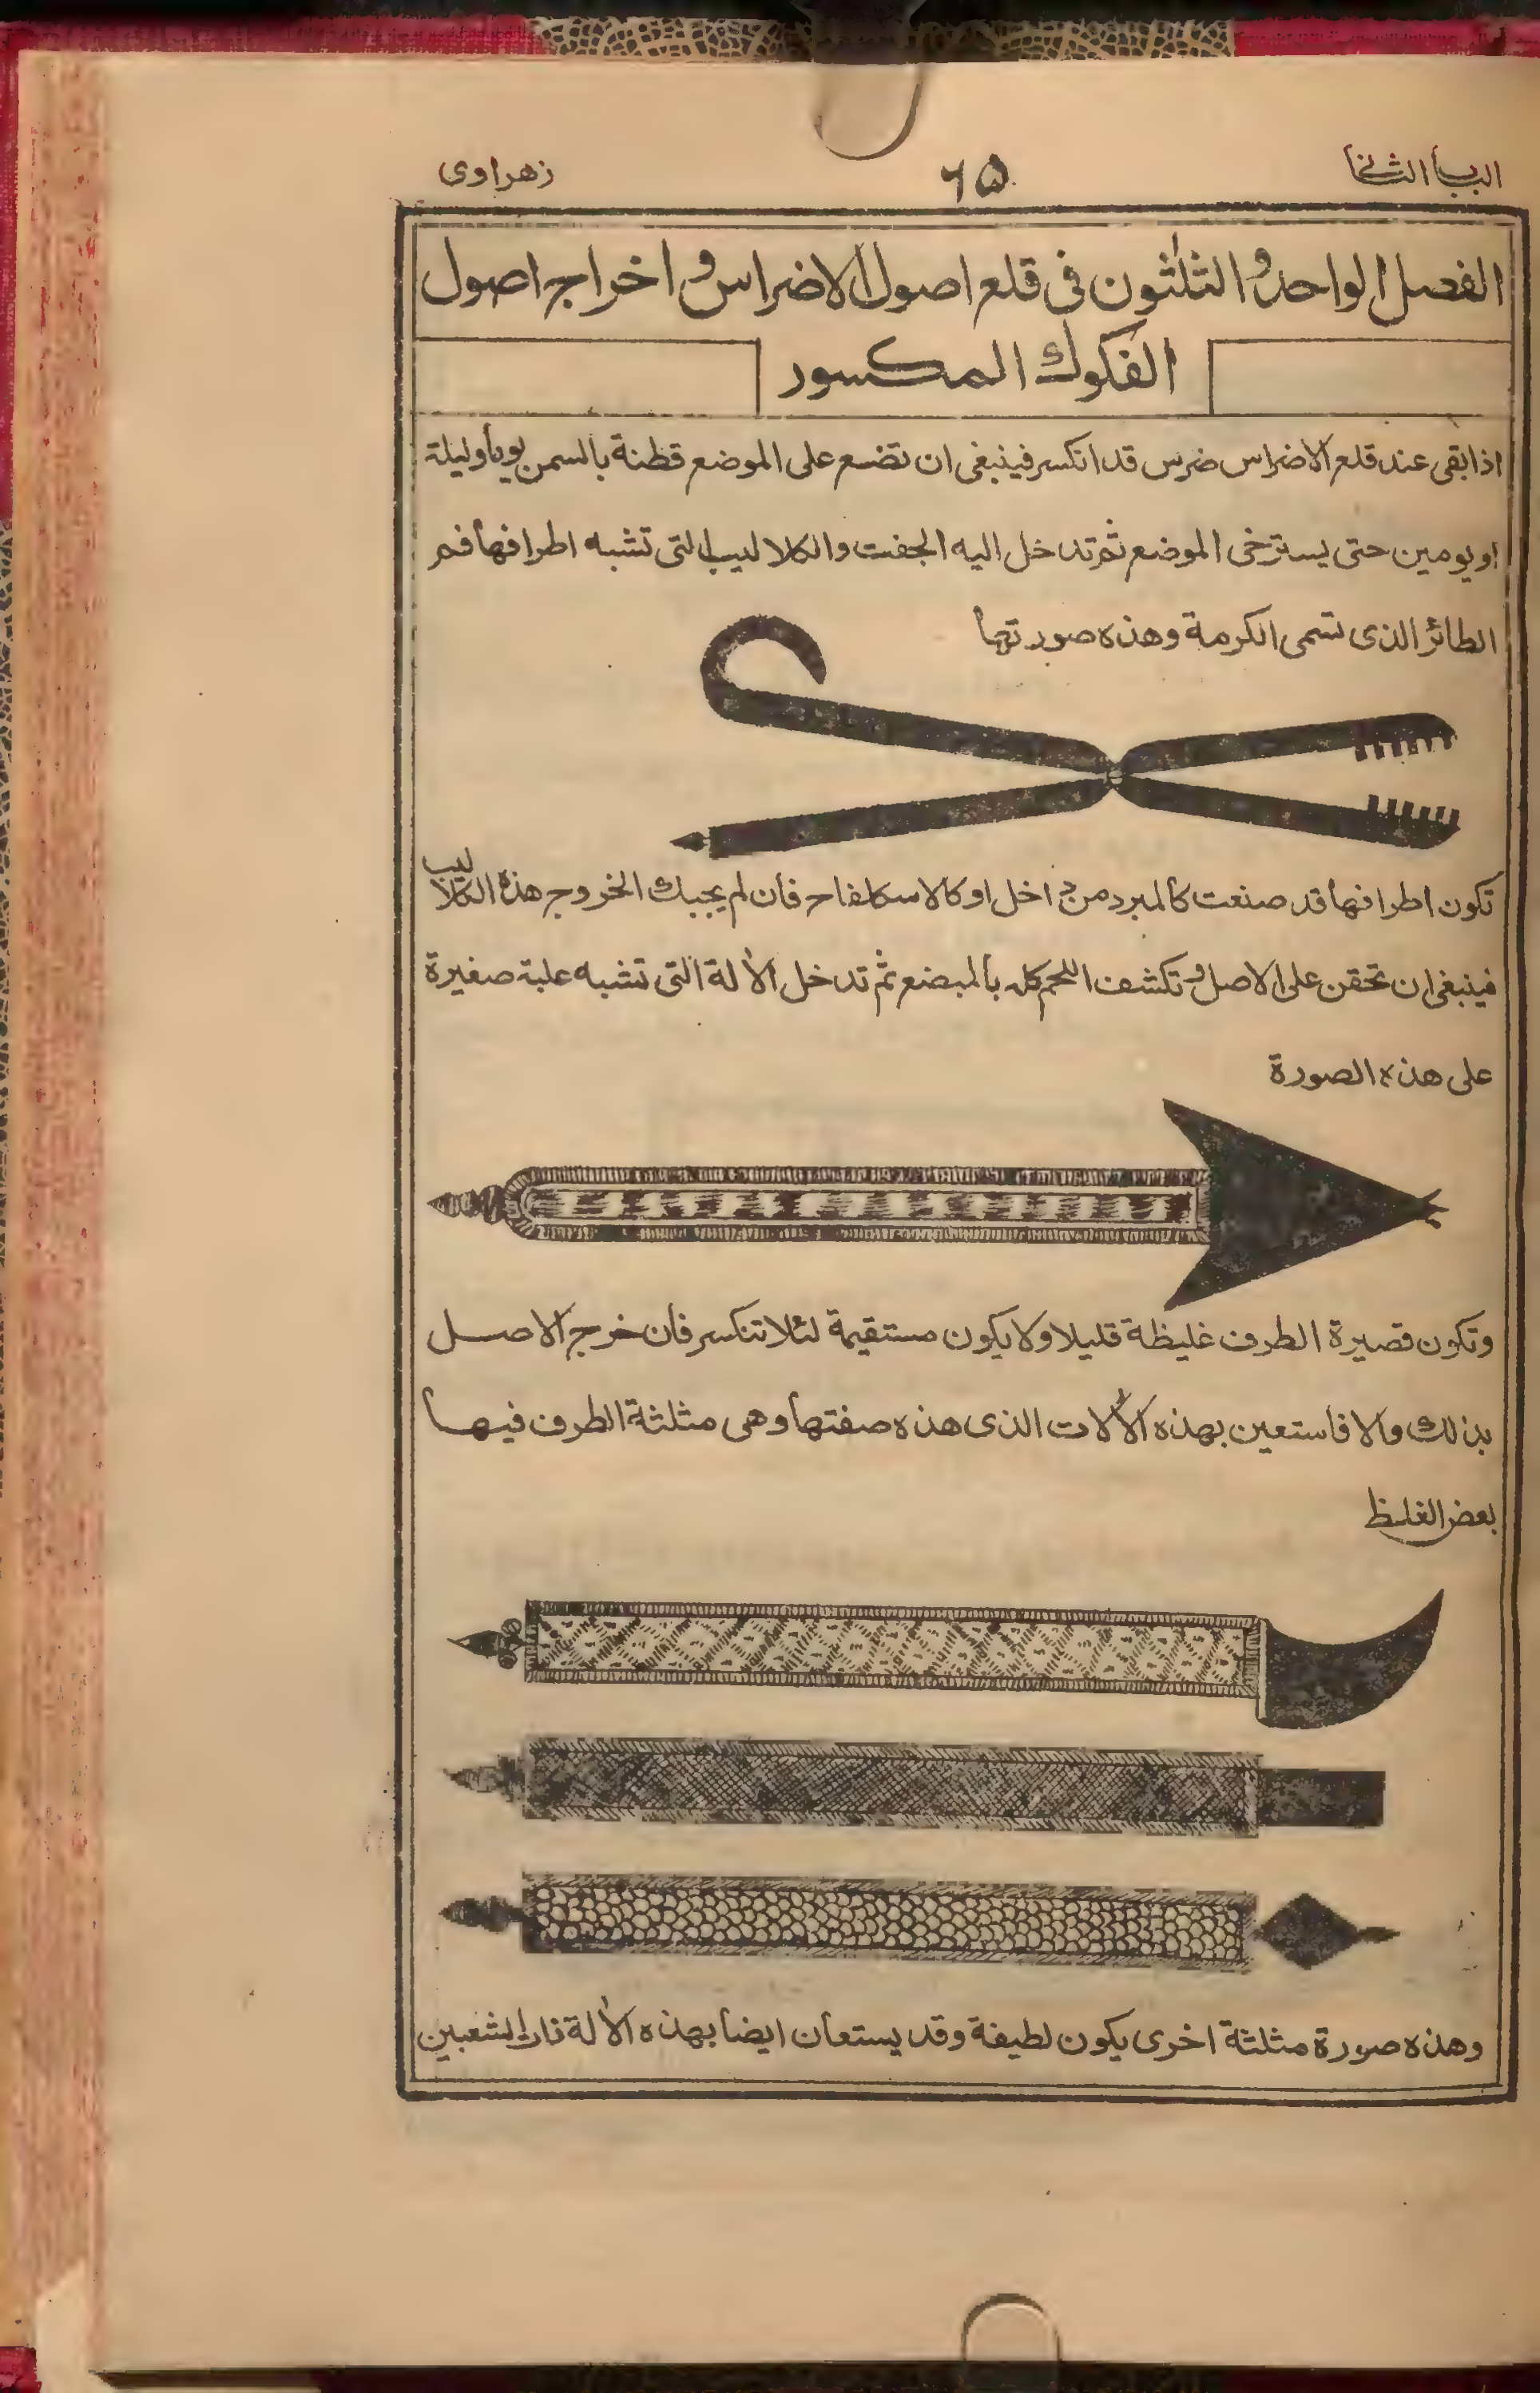 الباب الثانى
٦٥
زهراوى
الفصل الواحد و الثلثون فى قلع اصول الاضراس و اخراج اصول
الفكوك المكسور
اذا بقى عند قلع الاضراس ضرس قد انكسر فينبغى ان تضع على الموضع قطنة بالسمن يوما وليلة
او يومين حتى يسترخى الموضع ثم تدخل اليه الجفت والكلاليب التى تشبه اطرافها فم
الطائر الذى تسمى الكرمة وهذه صورتها
تكون اطرافها قد صنعت كالمبرد من داخل او كالاسكلفاح فان لم يجبك الخروج هذه الكلاليب
فينبغى ان تحقن على الاصل و تكشف اللحم كله بالمبضع ثم تدخل الالة التى تشبه علبة صغيرة
على هذه الصورة
وتكون قصيرة الطرف غليظة قليلا ولا يكون مستقيمة لئلا تنكسر فان خرج الاصل
بذلك والا فاستعين بهذه الالات الذى هذه صفتها وهى مثلثة الطرف فيها
بعض الغلظ
وهذه صورة مثلثة اخرى يكون لطيفة وقد يستعان ايضا بهذه الالة ذات الشعبين